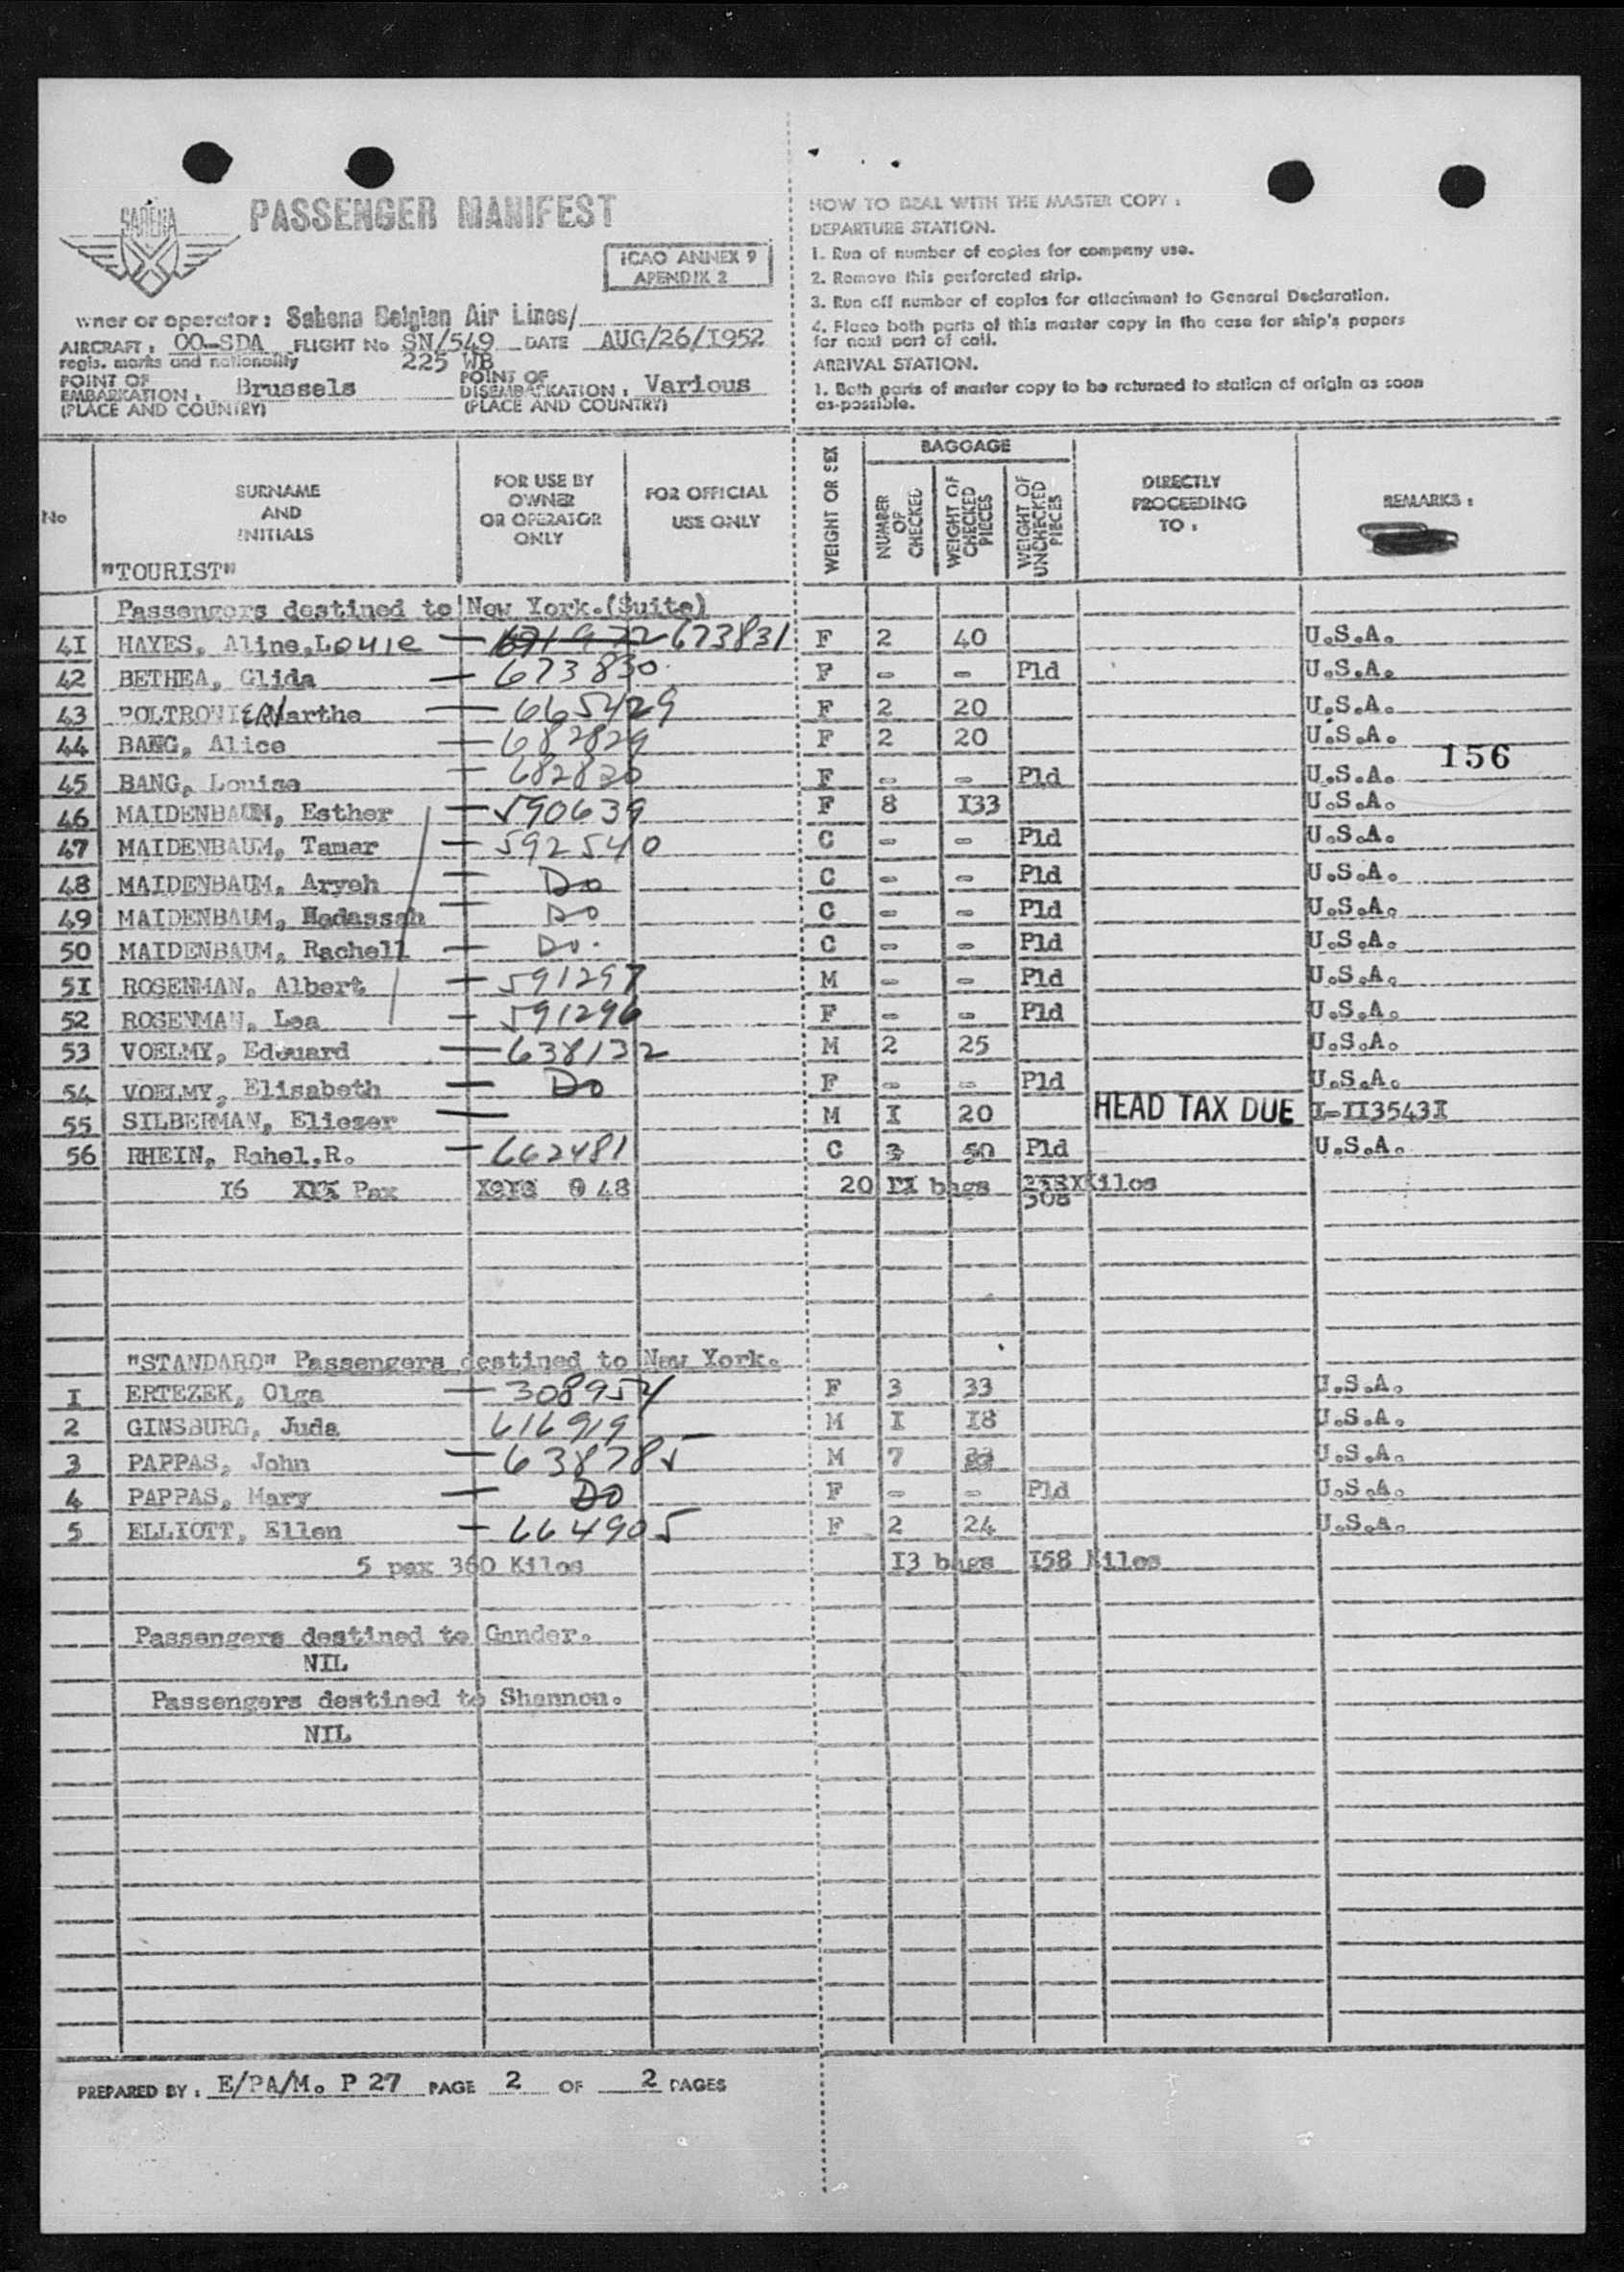 SABENA
PASSENGER MANIFEST
ICAO ANNEX 9
APENDIX 2
wner or operator : Sabena Belgian Air Lines/
AIRCRAFT : OO-SDA FLIGHT No SN/549 DATE AUG/26/I952
regis. marks and nationality 225 WB
POINT OF EMBARKATION : Brussels POINT OF DISEMBARKATION : Various
(PLACE AND COUNTRY) (PLACE AND COUNTRY)
HOW TO DEAL WITH THE MASTER COPY :
DEPARTURE STATION.
1. Run of number of copies for company use.
2. Remove this perforated strip.
3. Run off number of copies for attachment to General Declaration.
4. Place both parts of this master copy in the case for ship's papers
for next port of call.
ARRIVAL STATION.
1. Both parts of master copy to be returned to station of origin as soon
as-possible.
No
SURNAME
AND
INITIALS
"TOURIST"
FOR USE BY
OWNER
OR OPERATOR
ONLY
FOR OFFICIAL
USE ONLY
WEIGHT OR SEX
BAGGAGE
NUMBER OF CHECKED
WEIGHT OF CHECKED PIECES
WEIGHT OF UNCHECKED PIECES
DIRECTLY
PROCEEDING
TO :
REMARKS :
Passengers destined to New York.(Suite)
4I HAYES, Aline,Louie — 673831 F 2 40 U.S.A.
42 BETHEA, Glida — 673830 F - - Pld U.S.A.
43 POLTRONIERI Marthe — 665429 F 2 20 U.S.A.
44 BANG, Alice — 682829 F 2 20 U.S.A.
156
45 BANG, Louise — 682820 F - - Pld U.S.A.
46 MAIDENBAUM, Esther — 590639 F 8 I33 U.S.A.
47 MAIDENBAUM, Tamar — 592540 C - - Pld U.S.A.
48 MAIDENBAUM, Aryeh — Do C - - Pld U.S.A.
49 MAIDENBAUM, Hadassah — Do C - - Pld U.S.A.
50 MAIDENBAUM, Rachell — Do. C - - Pld U.S.A.
5I ROSENMAN, Albert — 591297 M - - Pld U.S.A.
52 ROSENMAN, Lea — 591296 F - - Pld U.S.A.
53 VOELMY, Edouard — 638132 M 2 25 U.S.A.
54 VOELMY, Elisabeth — Do F - - Pld U.S.A.
55 SILBERMAN, Eliezer — M I 20 HEAD TAX DUE I-II3543I
56 RHEIN, Rahel,R. — 662481 C 3 50 Pld U.S.A.
I6 Pax 48 20 bags Kilos
308
"STANDARD" Passengers destined to New York.
I ERTEZEK, Olga — 308954 F 3 33 U.S.A.
2 GINSBURG, Juda 616919 M I I8 U.S.A.
3 PAPPAS, John — 638785 M 7 U.S.A.
4 PAPPAS, Mary — Do F - - Pld U.S.A.
5 ELLIOTT, Ellen — 664905 F 2 24 U.S.A.
5 pax 360 Kilos I3 bags I58 Kilos
Passengers destined to Gander.
NIL
Passengers destined to Shannon.
NIL
PREPARED BY : E/PA/M. P 27 PAGE 2 OF 2 PAGES